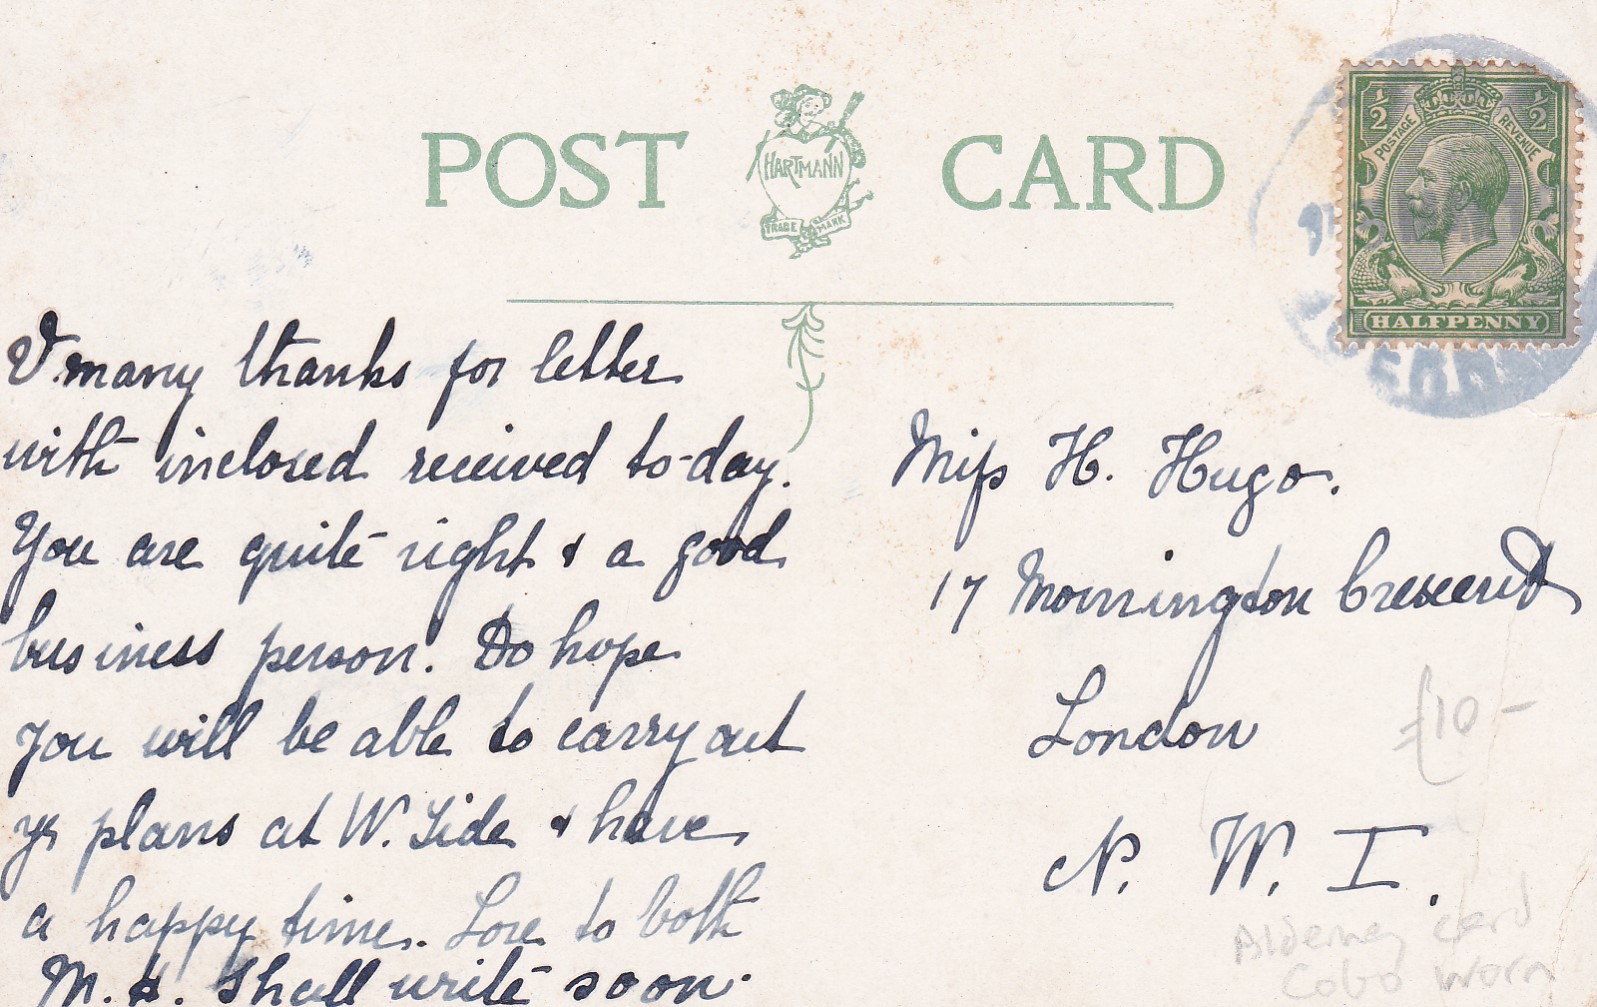 POST CARD
HARTMANN
TRADE MARK
1/2 1/2
POSTAGE REVENUE
HALFPENNY
V. many thanks for letter
with inclosed received to-day.
You are quite right & a good
business person. Do hope
you will be able to carry out
yr plans at W. Side & have
a happy time. Love to both
M. A. Shall write soon.
Miss H. Hugo.
17 Mornington Crescent
London
N. W. I.
£10-
Alderney card
Cobo worn